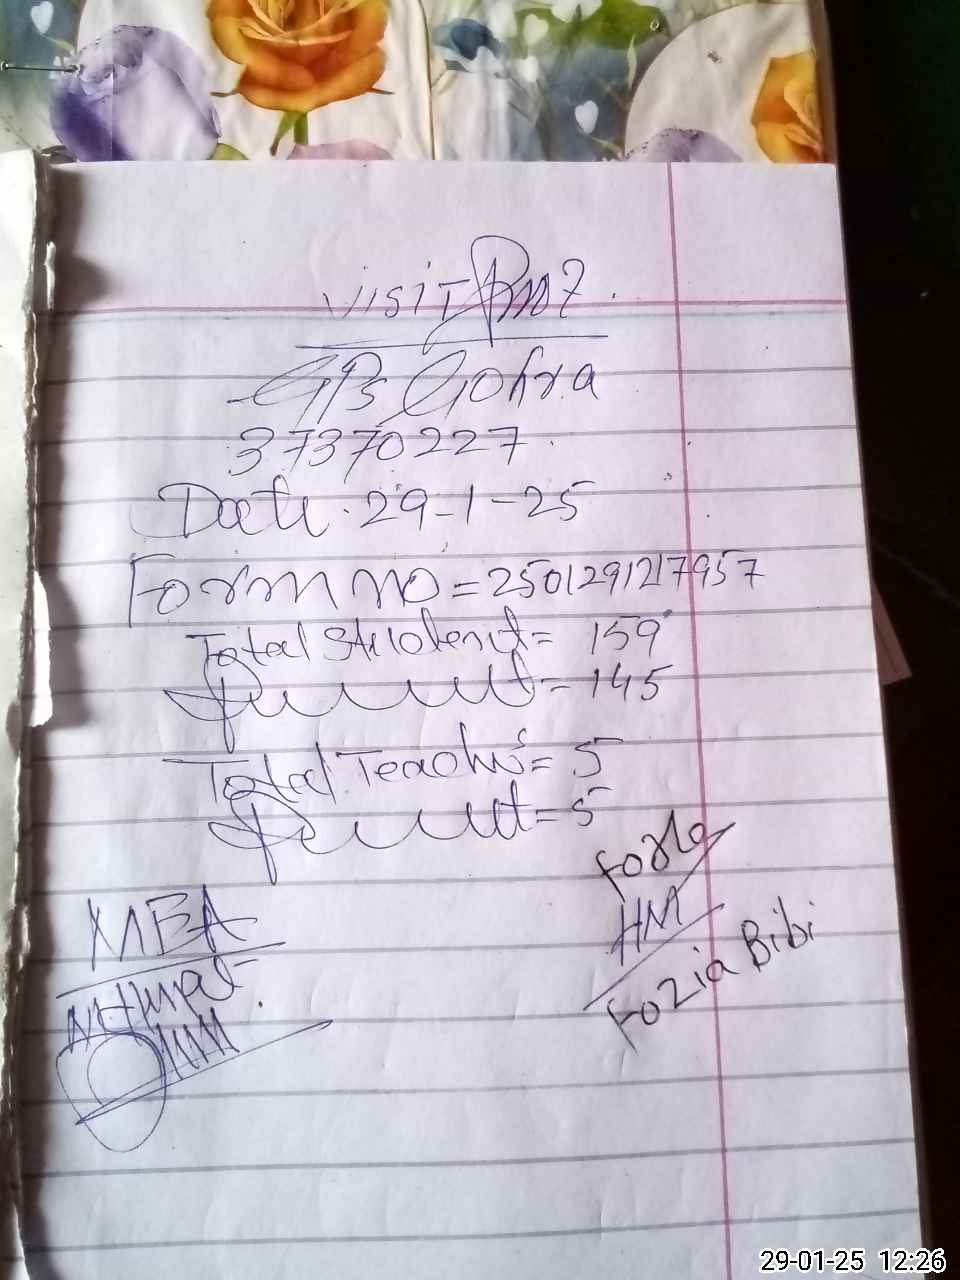 VISIT
GPS Gohra
37370227
Date. 29-1-25
Form no = 2501291217957
Total Student = 159
Present = 145
Total Teacher = 5
Present = 5
MEA
Fozia
HM
Fozia Bibi
29-01-25 12:26